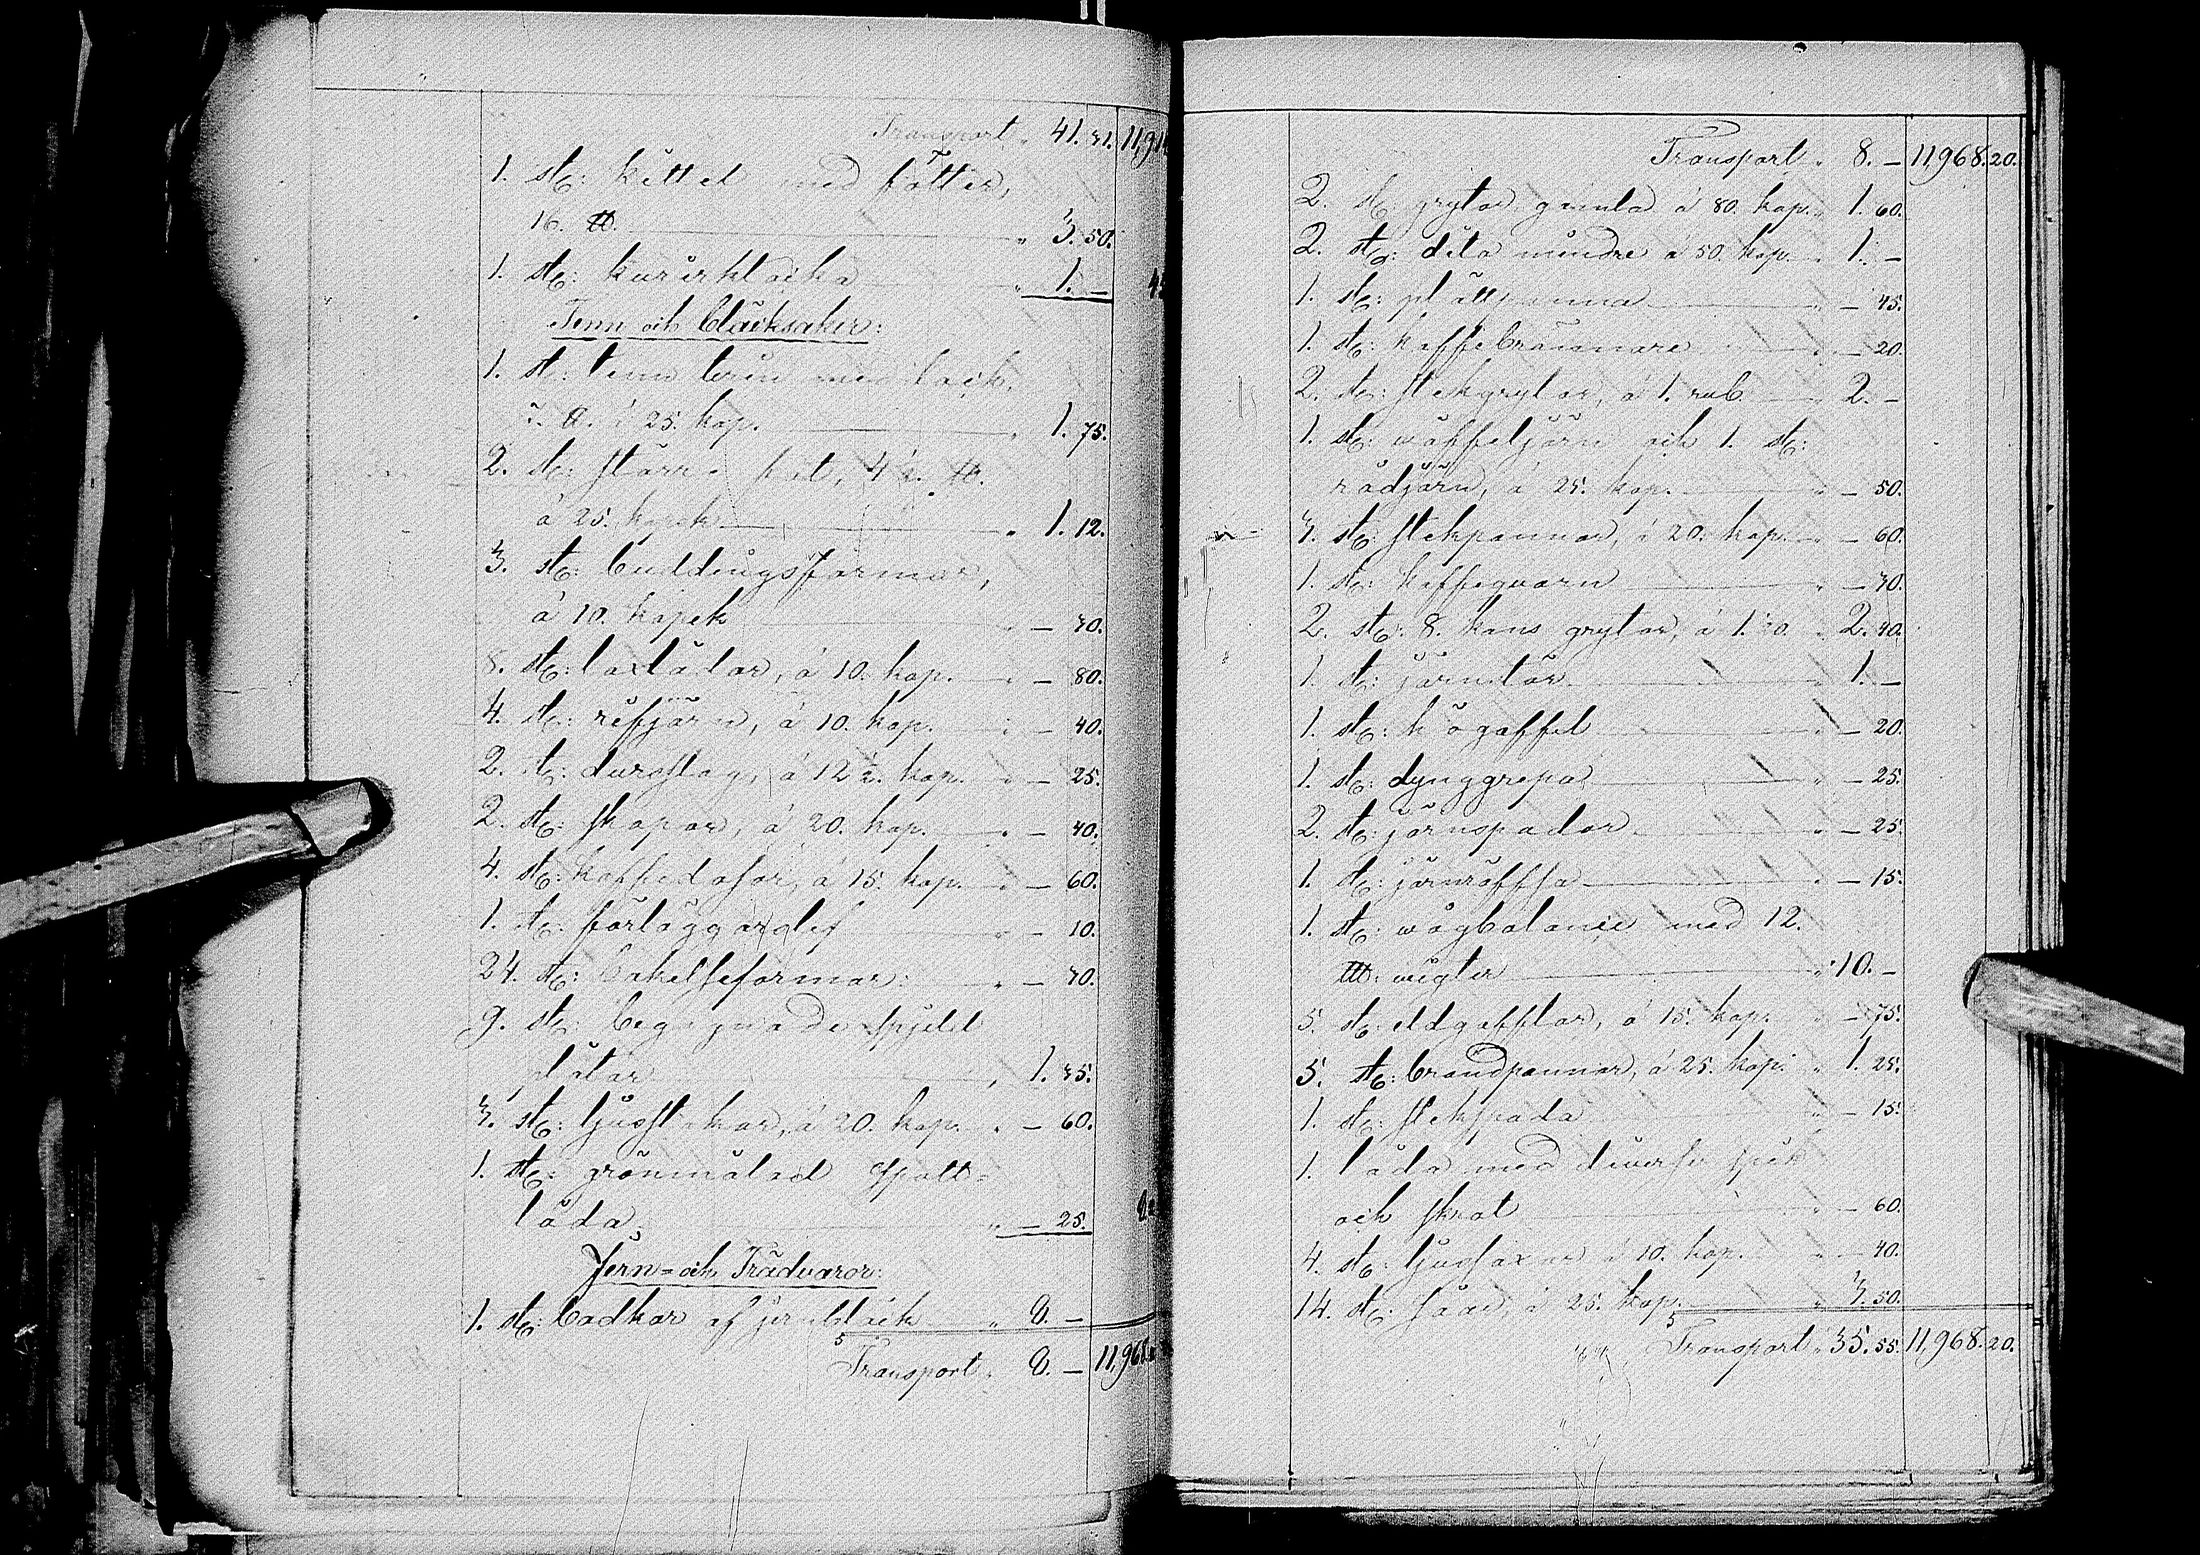 Transport „ 41. 31. 11,91
1. st: kittel med fötter,
16. ℔. „ 3. 50.
1. st: kurirklocka „ 1. —
Tenn och bläcksaker:
1. st: tenn terin med lock,
7. ℔. á 25. kop. „ 1. 75.
2. st: större fat, 4½. ℔.
á 25. kopek „ 1. 12.
3. st: buddingsformar,
á 10. kopek „ — 30.
8. st: laxlådor, á 10. kop. „ — 80.
4. st: rifjärn, á 10. kop. „ — 40.
2. st: durchslag, á 12½. kop. „ — 25.
2. st: skopor, á 20. kop. „ — 40.
4. st: kaffedosor, á 15. kop. „ — 60.
1. st: förläggarslef „ — 10.
24. st: bakelseformar: „ — 30.
9. st: begagnade spjell
plåtar „ 1. 35.
3. st: ljusstakar, á 20. kop. „ — 60.
1. st: grönmålad spott-
låda „ — 25.
Jern- och Trädvaror:
1. st: badkar af jernbläck „ 8. —
Transport „ 8. — 11,968.
Transport „ 8. — 11,968. 20.
2. st: grytor gamla á 80. kop. „ 1. 60.
2. st: dito mindre á 50. kop. „ 1. —
1. st: plättpanna „ — 45.
1. st: kaffebrännare „ — 20.
2. st: stekgrytor, á 1. rub. „ 2. —
1. st: wåffeljärn och 1. st:
rådjärn, á 25. kop. „ — 50.
3. st: stekpannor, á 20. kop. „ — 60.
1. st: kaffeqvarn „ — 30.
2. st: 8. kans grytor, á 1. 20. „ 2. 40.
1. st: järnstör „ 1. —
1. st: högaffel „ — 20.
1. st: dynggrepa „ — 25.
2. st: järnspador „ — 25.
1. st: järnräffsa „ — 15.
1. st: wågbalance med 12.
℔: wigter „ 10. —
5. st: eldgafflar, á 15. kop. „ — 75.
5. st: brandpannor, á 25. kop. „ 1. 25.
1. st: stekspada „ — 15.
1. låda med diverse spik
och skrot „ — 60.
4. st: ljussaxar á 10. kop. „ — 40.
14. st: såar, á 25. kop. „ 3. 50.
Transport „ 35. 55. 11,968. 20.